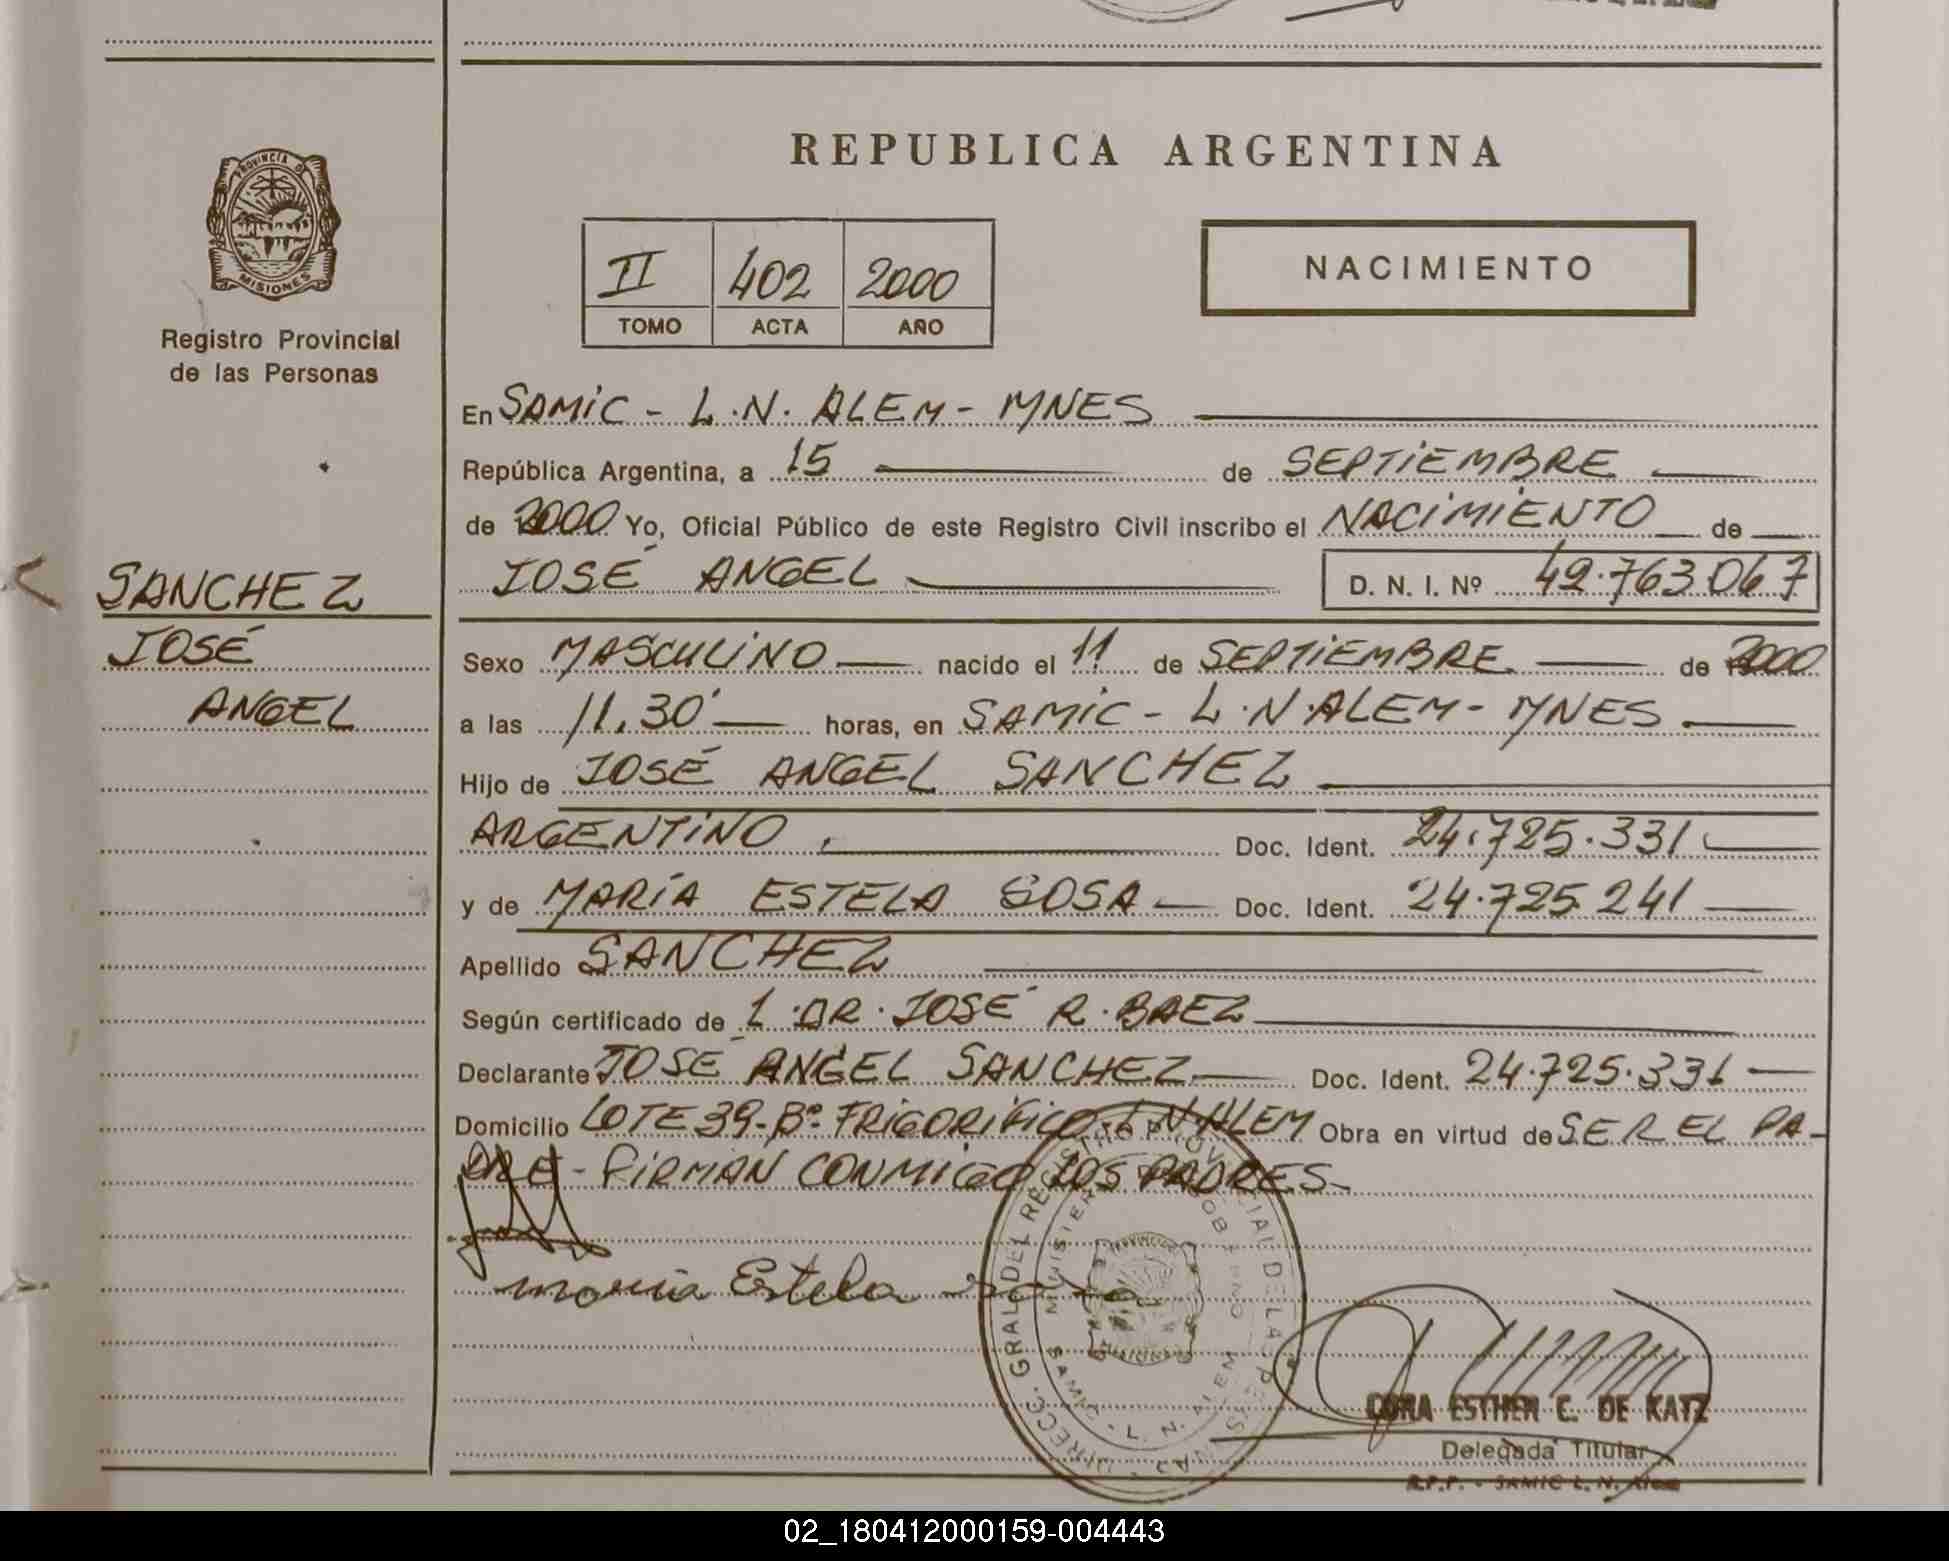 REPUBLICA ARGENTINA
PROVINCIA DE
MISIONES
Registro Provincial
de las Personas
II 402 2000
TOMO ACTA AÑO
NACIMIENTO
SANCHEZ
JOSÉ
ANGEL
En SAMIC - L.N. ALEM - MNES
República Argentina, a 15 de SEPTIEMBRE
de 2000 Yo, Oficial Público de este Registro Civil inscribo el NACIMIENTO de
JOSÉ ANGEL D. N. I. Nº 42.763.067
Sexo MASCULINO nacido el 11 de SEPTIEMBRE de 2000
a las 11,30' horas, en SAMIC - L.N.ALEM - MNES
Hijo de JOSÉ ANGEL SANCHEZ
ARGENTINO Doc. Ident. 24.725.331
y de MARÍA ESTELA SOSA Doc. Ident. 24.725.241
Apellido SANCHEZ
Según certificado de L. DR. JOSÉ R. BAEZ
Declarante JOSÉ ANGEL SANCHEZ Doc. Ident. 24.725.331
Domicilio LOTE 39 - Bº FRIGORIFICO - L.N.ALEM Obra en virtud de SER EL PA-
DRE - FIRMAN CONMIGO LOS PADRES.
maria Estela
DIRECC. GRAL. DEL REGISTRO PROVINCIAL DE LAS PERSONAS
SAMIC - L. N. ALEM
PROVINCIA
MISIONES
CORA ESTHER C. DE KATZ
Delegada Titular
R.P.P. - SAMIC L. N. Alem
02_180412000159-004443